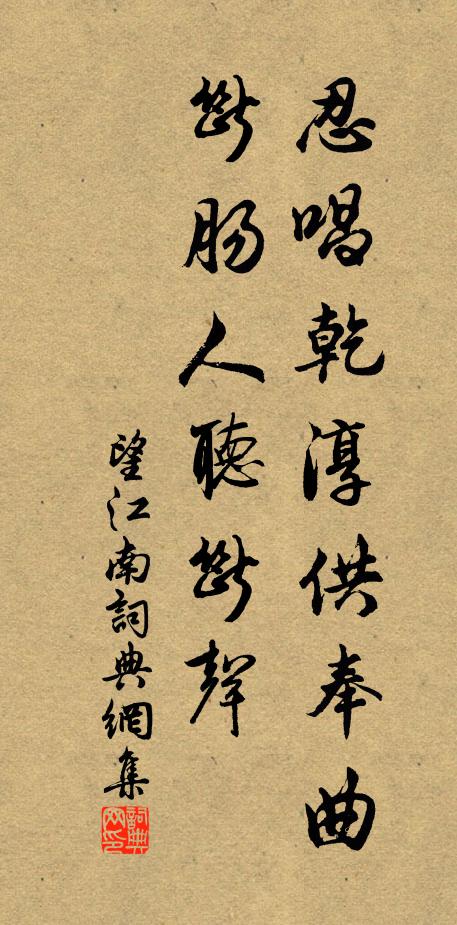 忍唱乾淳供奉曲
斷腸人聽斷聲
望江南詞典網集
詞典网印